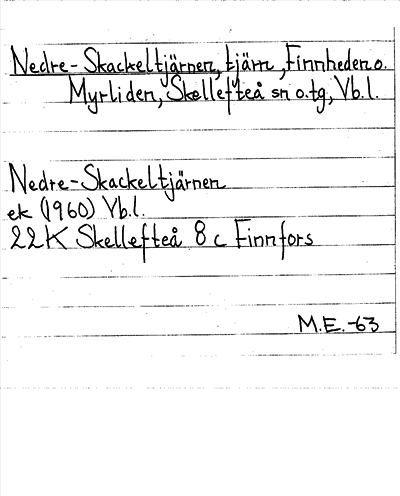 Nedre-Skackeltjärnen, tjärn, Finnheden o.
Myrliden, Skellefteå sn o. tg, Vb. l.
Nedre-Skackeltjärnen
ek (1960) Vb. l.
22K Skellefteå 8 c Finnfors
M.E. -63